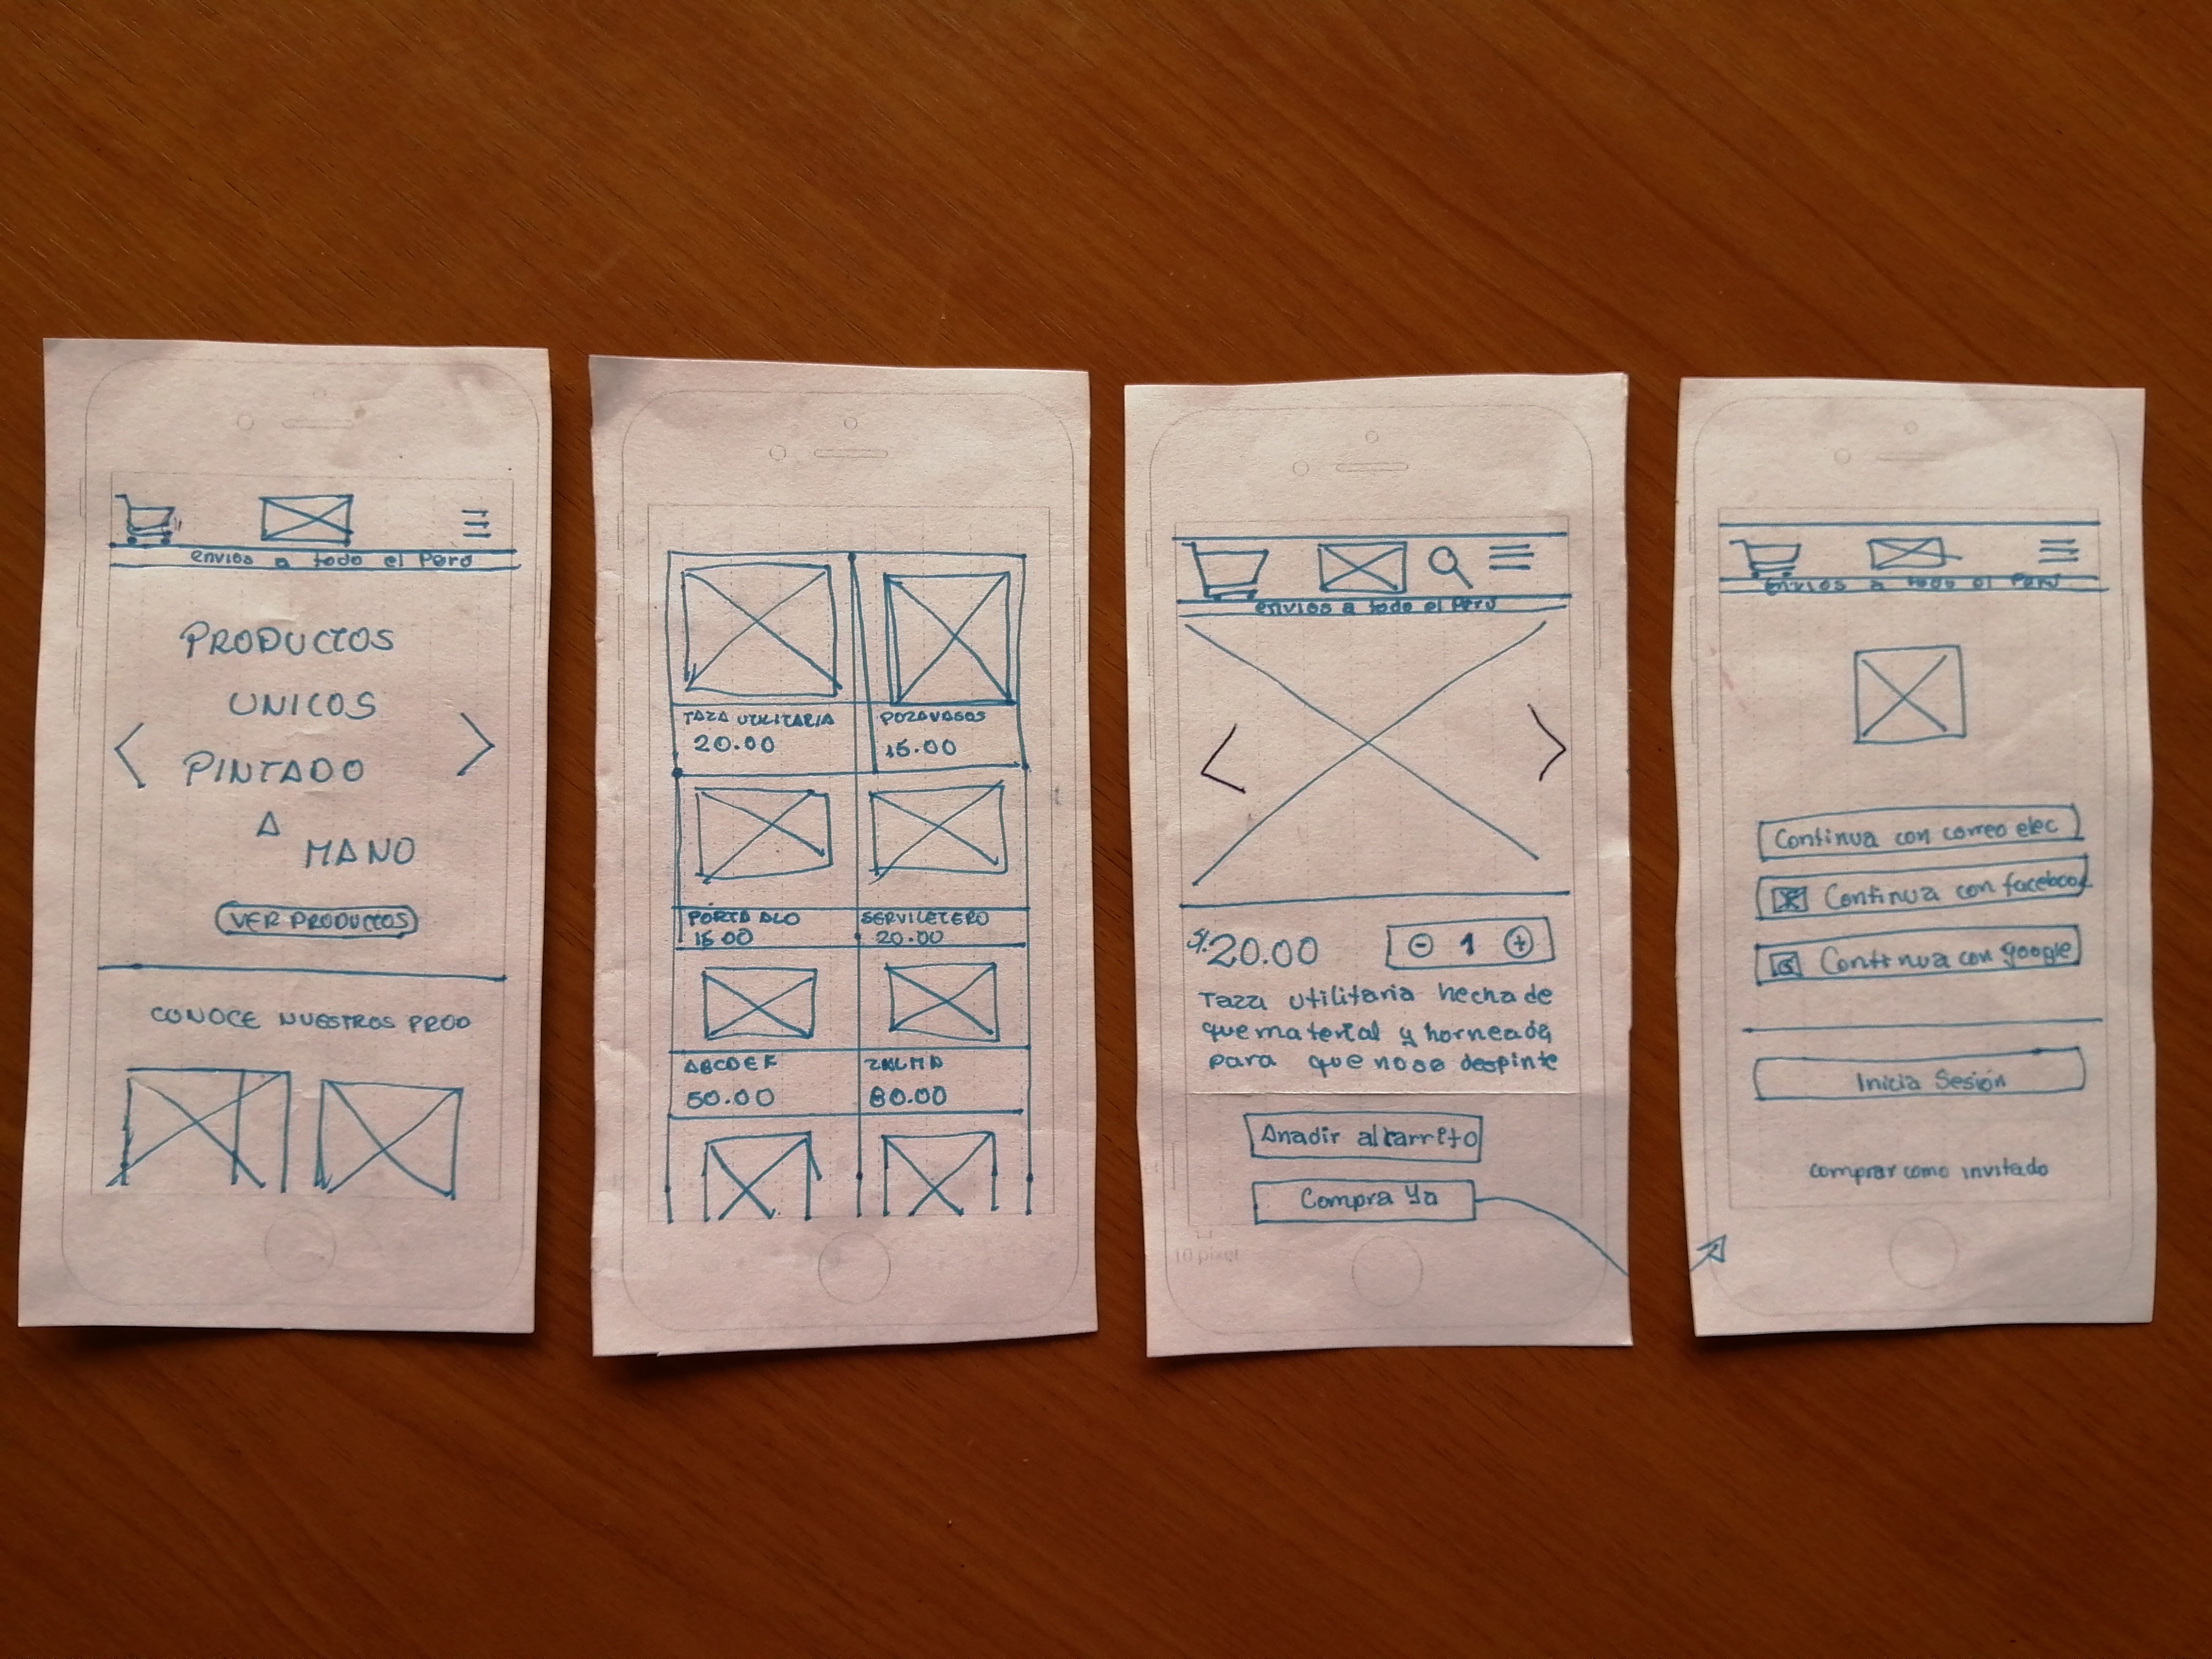 envios a todo el Perú
PRODUCTOS
UNICOS
PINTADO
A
MANO
VER PRODUCTOS
CONOCE NUESTROS PROD
TAZA UTILITARIA
20.00
POZAVASOS
15.00
PORTA
15.00
SERVILETERO
20.00
ABCDEF
50.00
80.00
envios a todo el Perú
S/.20.00
1
Taza utilitaria hecha de
que material y horneada
para que no se despinte
Anadir al carrito
Compra Ya
10 pixel
envios a todo el Perú
Continua con correo elec
Continua con facebook
G Continua con google
Inicia Sesión
comprar como invitado